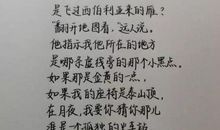 是飞过西伯利亚来的雁？
“翻开地图看”，这人说。
他指示我他所在的地方
是哪条虚线旁的那个小黑点。
如果那是金黄的一点，
如果我的座椅是泰山顶，
在月夜，我要你猜你那儿
准是一个孤独的火车站